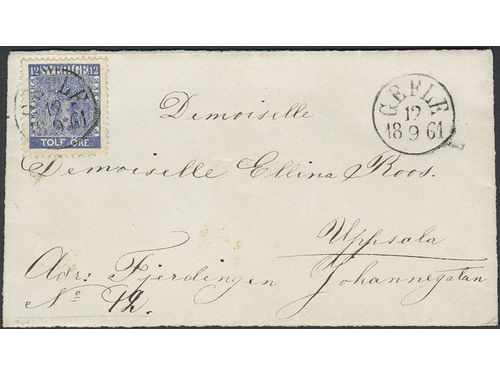 12 SVERIGE 12
TOLF ÖRE
12
9 61
GEFLE
12
18 9 61
Demoiselle
Demoiselle Ellina Roos.
Uppsala
Adr: Fjerdingen Johannegatan
No